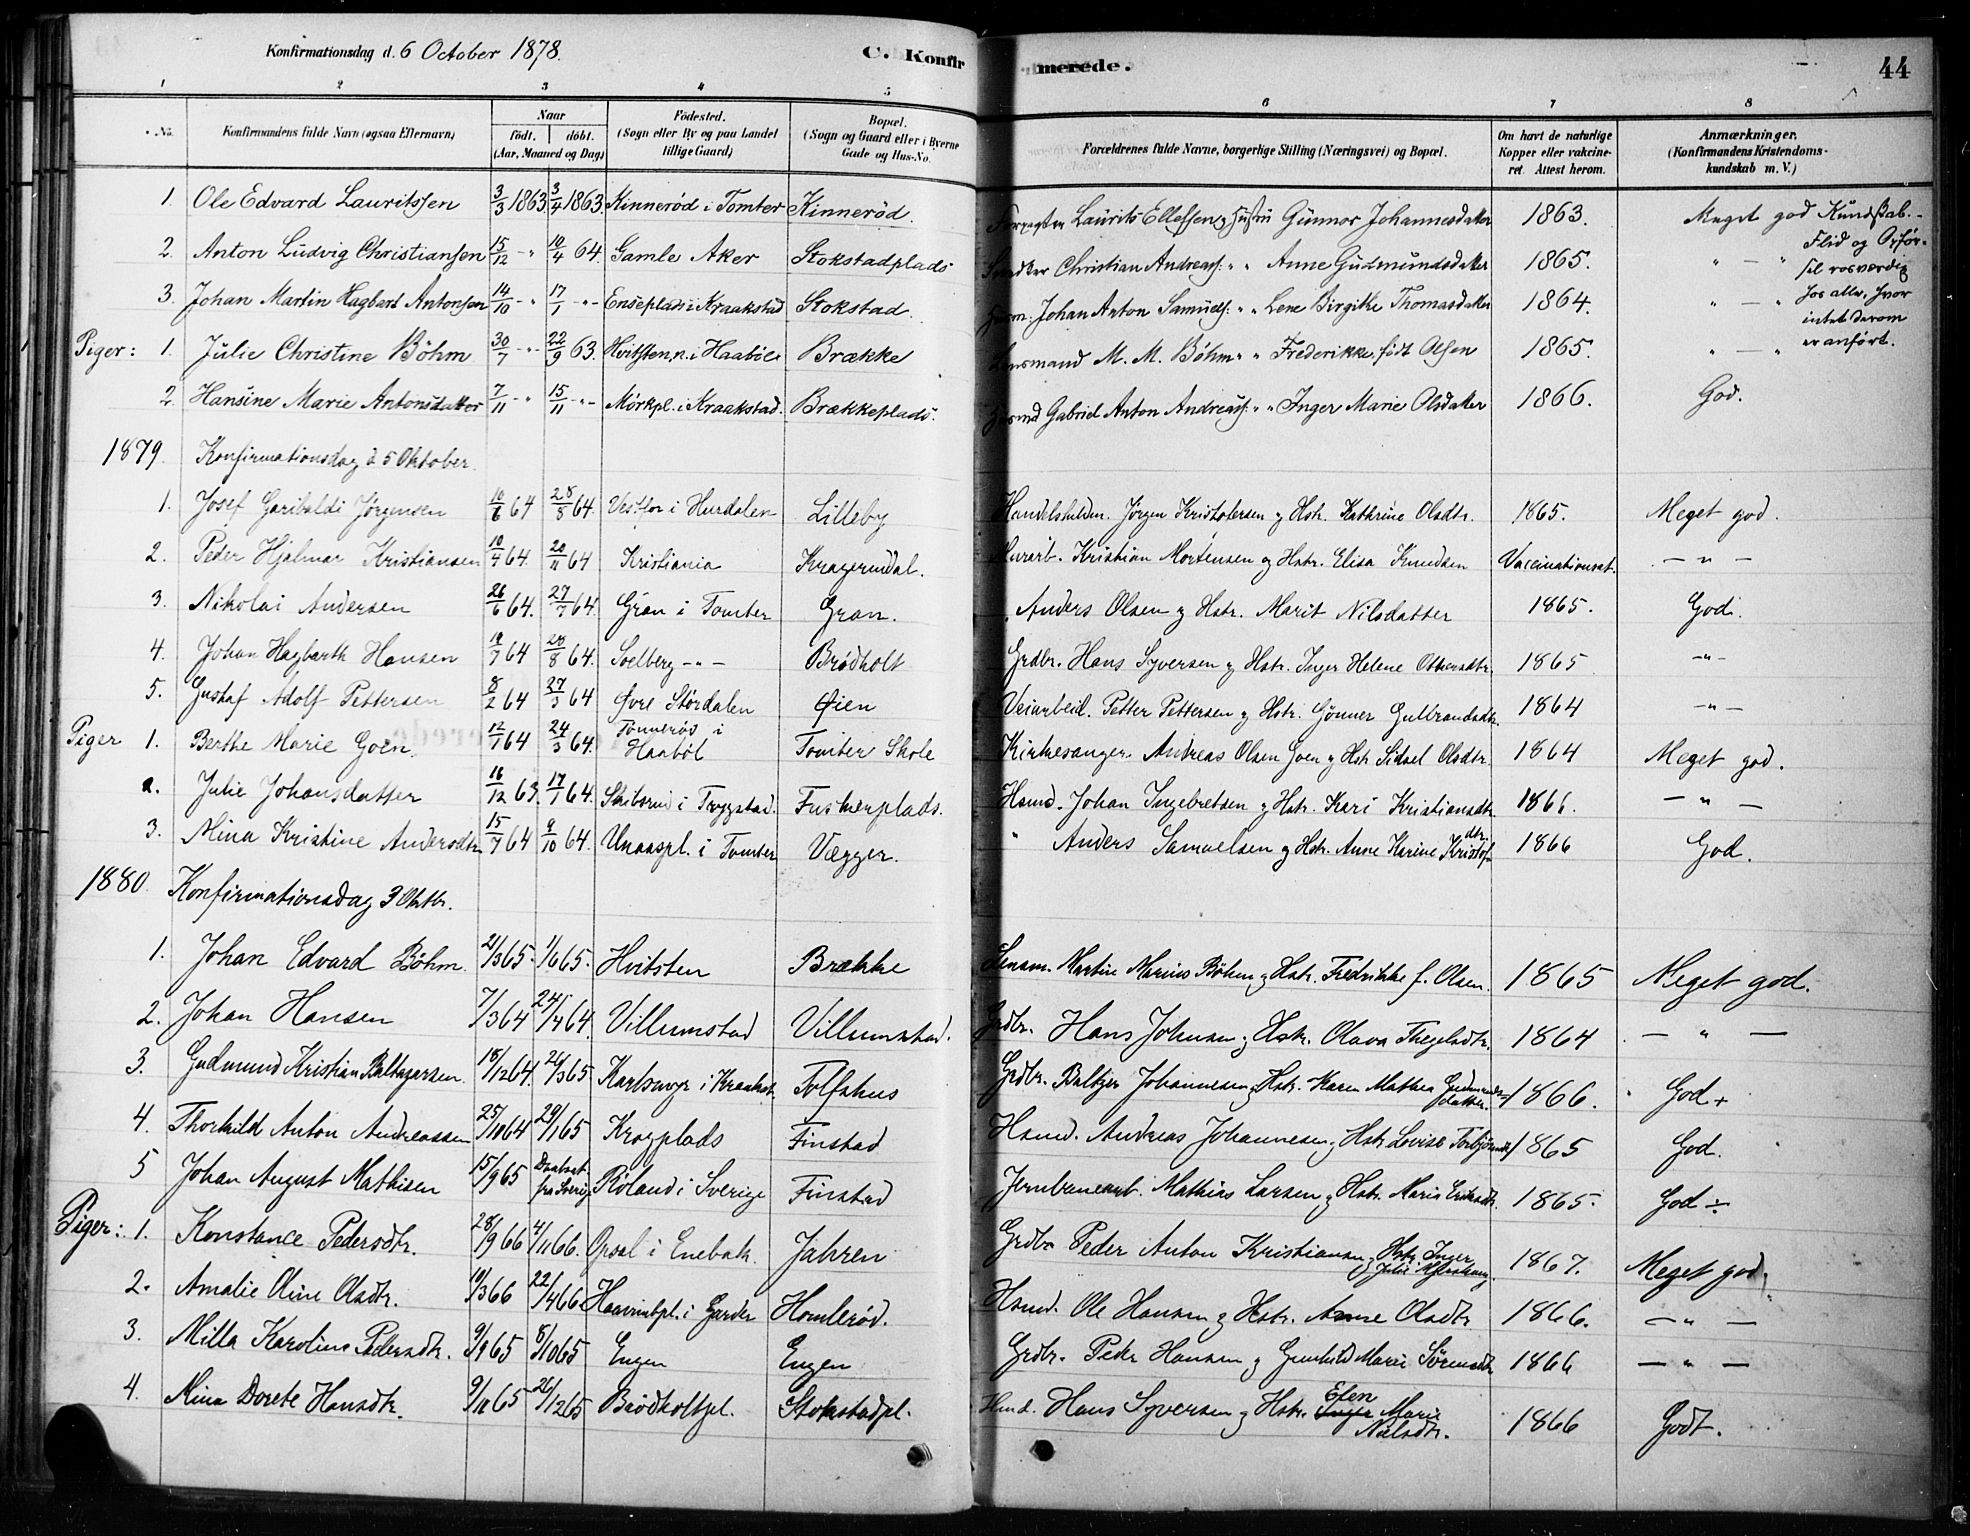 Konfirmationsdag d. 6 October 1878.
C. Konfirmerede.
44
1 2 3 4 5 6 7 8
No.
Konfirmandens fulde Navn (ogsaa Efternavn)
Naar
födt. döbt.
(Aar, Maaned og Dag)
Födested.
(Sogn eller By og paa Landet
tillige Gaard)
Bopæl.
(Sogn og Gaard eller i Byerne
Gade og Hus-No.
Forældrenes fulde Navne, borgerlige Stilling (Næringsvei) og Bopæl.
Om havt de naturlige
Kopper eller vakcine-
ret. Attest herom.
Anmærkninger.
(Konfirmandens Kristendoms-
kundskab m. V.)
1. Ole Edvard Lauritssen 3/3 1863 3/4 1863. Kinnerød i Tomter Kinnerød. Laurits Ellefsen og Hustru Gunnor Johannesdatter 1863. Meget god Kundskab. -
2. Anton Ludvig Christiansen 15/12 - " 10/4 64. Gamle Aker Stokstadplads Christian Andreass: " " Anne Gudmundsdatter 1865. " - "
3. Johan Martin Hagbart Antonsen 14/10 - " 17/1 - " - Enseplads i Kraakstad Stokstad. Husm. Johan Anton Samuels: " " Lene Birgitte Thomasdatter 1864. " - "
Flid og Opför-
sel rosværdig
hos alle, hvor
intet derom
er anført.
Piger: 1. Julie Christine Böhm 30/7 - " - 22/9 63. Hvitsten, n. i Haaböl Brække Lensmand M. M. Böhm " " Frederikke, født Olsen 1865. " - "
2. Hansine Marie Antonsdatter 7/11 - " 15/11 - " - Mörkpl. i Kraakstad. Brækkeplads. Husmd Gabriel Anton Andreass: " " Inger Marie Olsdatter 1866. God.
1879. Konfirmationsdag d 5 Oktober.
1. Josef Garibaldi Jørgensen 10/6 64 28/8 64. i Hurdalen Lilleby Handelsbetjen. Jørgen Kristofersen og Hstr. Kathrine Olsdtr. 1865. Meget god.
2. Peder Hjalmar Kristiansen 10/4 64. 20/11 64 Kristiania Kragerudal. Murarb. Kristian Mortensen og Hstr. Elisa Knudsen Vaccinationsat. - " -
3. Nikolai Andersen 26/6 64. 27/7 64. Gran i Tomter Gran. Anders Olsen og Hstr. Marit Nilsdatter 1865. God.
4. Johan Hagbarth Hansen 19/7 64 28/8 64. Solberg - " - Brødholt Grdbr. Hans Syversen og Hstr. Inger Helene 1865 - " -
5. Gustaf Adolf Pettersen 8/2 64 27/3 64 Øvre Størdalen Øien Veiarbeid. Petter Pettersen og Hstr. Gønner Gulbrandsdtr. 1864 - " -
Piger 1. Berthe Marie Goen. 12/1 64 24/3 64. Tønnerøs i Haaböl Tomter Skole Kirkesanger. Andreas Olsen Goen og Hstr Sidsel Olsdtr. 1864 Meget god.
2. Julie Johansdatter 16/12 63. 17/1 64. Skibsrud i Trygstad. Fuskerplads. Hsmd. Johan Ingebretsen og Hstr. Kari Kristiansdtr. 1866. - " -
3. Mina Kristine Andersdtr 15/7 64 9/10 64. Unaaspl. i Tomter Vægger. " Anders Samuelsen og Hstr. Anne Karine Kristofdtr. 1866 God.
1880. Konfirmationsdag 3 Oktbr.
1. Johan Edvard Böhm. 21/3 65. 1/6 65. Hvitsten Brække Lensm. Martin Marius Böhm og Hstr. Fredrikke f. Olsen. 1865 Meget god.
2. Johan Hansen 7/3 64 24/4 64. Villumstad Villumstad. Grdbr. Hans Johnsen og Hstr. Olava Thegelsdtr. 1864 - " -
3. Gudmund Kristian Baltzersen. 18/12 64. 26/3 65 Karlsmyr i Kraakst. Tolfshus Grdbr. Baltzer Johannesen og Hstr. Karen Mathea Gudmundsdatter. 1866. God +
4. Thorkild Anton Andreassen 25/10 64 29/1 65 Krogplads Finstad Hsmd. Andreas Johannesen og Hstr Lovise Torbjörnsd 1865 God.
5 Johan August Mathisen 15/9 65 Daabsat. fra Sverig Röland i Sverige Finstad Jernbanearb. Mathias Larsen og Hstr. Maria Eriksdtr. 1865. God ÷
Piger: 1. Konstance Pedersdtr. 28/9 66 4/11 66. Opsal i Enebak Jahren Grdbr Peder Anton Kristiansen og Hstr. Inger Julie 1867. Meget god.
2. Amalie Oline Olsdtr. 19/3 66 22/4 66 i Garder Homlerød. Hsmd. Ole Hansen og Hstr. Anne Olsdtr 1866. - " -
3. Milla Karoline Pedersdtr. 9/9 65 8/10 65 Engen Engen Grdbr. Peder Hansen og Gunhild Marie Sørensdtr 1866 - " -
4. Mina Dorete Hansdtr. 9/11 65 26/12 65 Brödholtpl. Stokstadpl. Hsmd. Hans Syversen og Hstr. Elen Marie Nilsdtr. 1866 Godt.